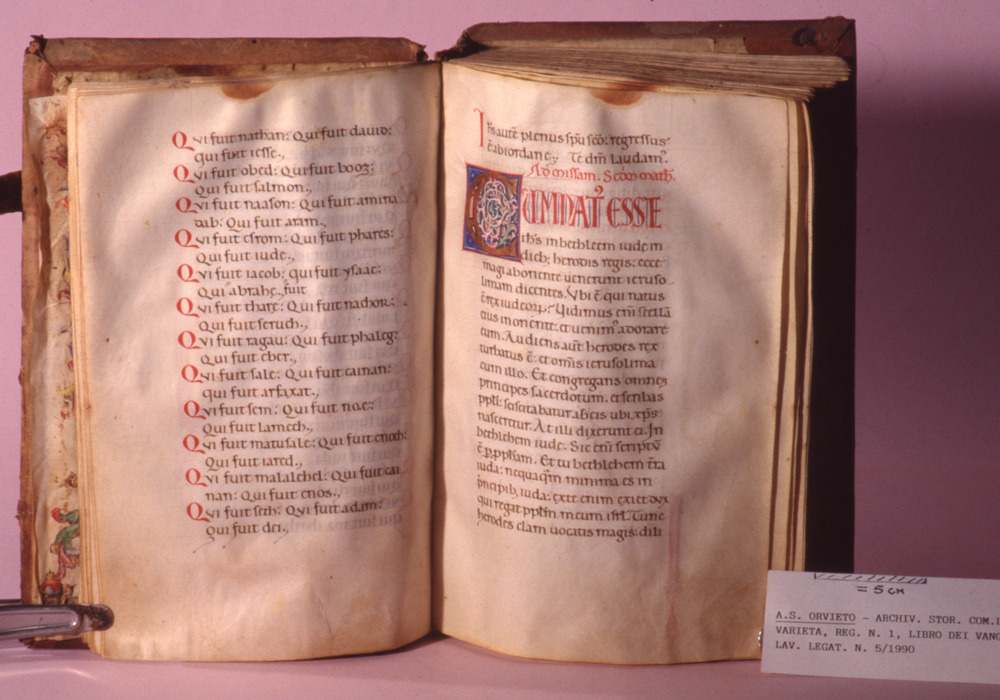 Qui fuit nathan: Qui fuit dauid:
qui fuit iesse.,
Qui fuit obed: Qui fuit booz:
Qui fuit salmon.,
Qui fuit naason: Qui fuit amina
dab: Qui fuit aram.,
Qui fuit esrom: Qui fuit phares:
Qui fuit iude.,
Qui fuit iacob: qui fuit ysaac:
Qui abrahe, fuit
Qui fuit thare: Qui fuit nachor:
Qui fuit seruch.,
Qui fuit ragau: Qui fuit phaleg:
Qui fuit eber.,
Qui fuit sale: Qui fuit cainan:
qui fuit arfaxat.,
Qui fuit sem: Qui fuit noe:
Qui fuit lamech.,
Qui fuit matusale: Qui fuit enoch:
Qui fuit iared.,
Qui fuit malalehel: Qui fuit cai
nan: Qui fuit enos.,
Qui fuit seth: Qui fuit adam:
qui fuit dei.,
Ihs autē plenus spū scō: regressus
ē abiordane. Te dm̄ laudam᾽.
Ad missam. Scdm math.
CUM NAT᾽ ESSE
ihs in bethleem iude in
dieb; herodis regis: ecce
magi ab oriente uenerunt ieruso
limam dicentes. Vbi ē qui natus
ē rex iudeoꝝ. Vidimus eni stellā
eius in oriente: et uenim᾽ adorare
eum. Audiens aut̄ herodes rex
turbatus ē: et om̄is ierusolima
cum illo. Et congregans omnes
principes sacerdotum. et scribas
ppli: sciscitabatur ab eis ubi xp̄s
nasceretur. At illi dixerunt ei. In
bethlehem iude. Sic eni scriptū
ē p pph̄am. Et tu bethlehem t̄ra
iuda: nequaq̄m minima es in
principib; iuda: ex te enim exiet dux
qui regat pplm̄ meum isrl̄. Tunc
herodes clam uocatis magis: dili
= 5 CM
A.S. ORVIETO - ARCHIV. STOR. COM.
VARIETA, REG. N. 1, LIBRO DEI VANG
LAV. LEGAT. N. 5/1990